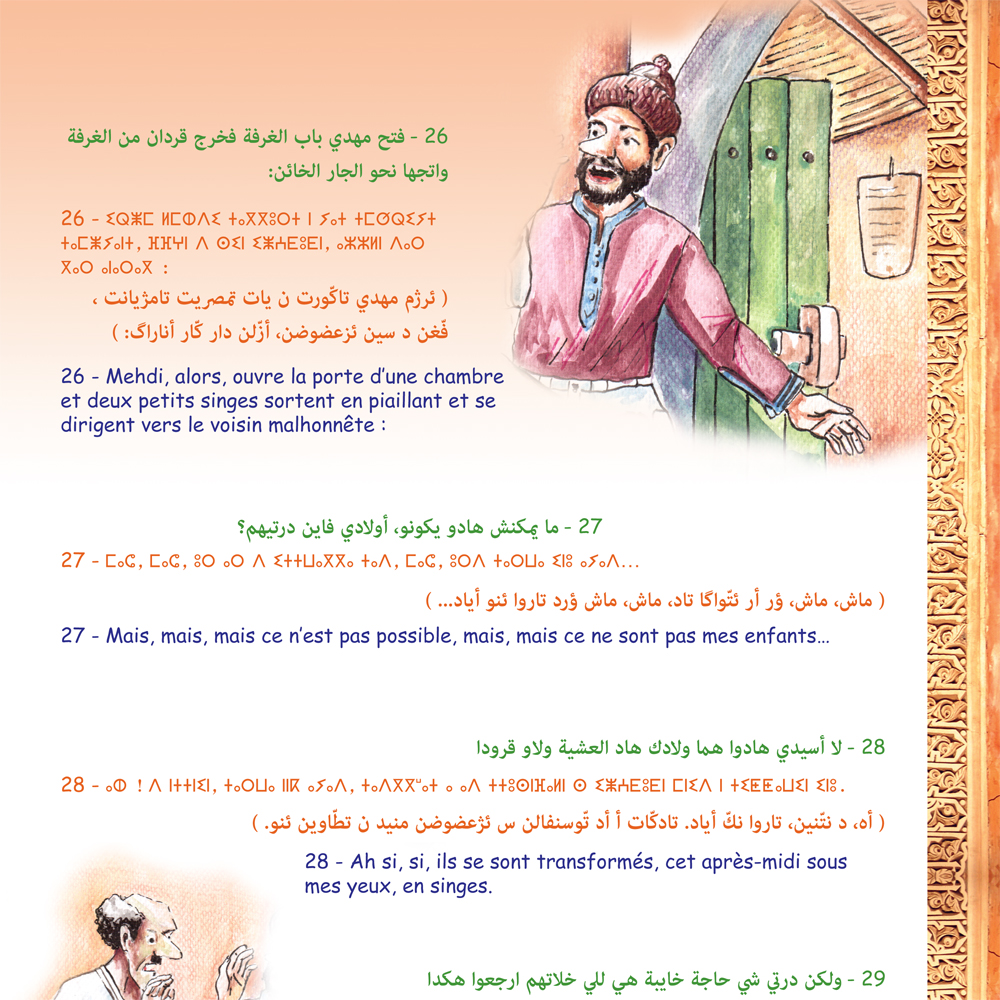 26 - فتح مهدي باب الغرفة فخرج قردان من الغرفة
واتجها نحو الجار الخائن:
26 - ⵉⵕⵥⵎ ⵍⵎⵀⴷⵉ ⵜⴰⴳⴳⵓⵔⵜ ⵏ ⵢⴰⵜ ⵜⵎⵚⵕⵉⵢⵜ
ⵜⴰⵎⵥⵢⴰⵏⵜ, ⴼⴼⵖⵏ ⴷ ⵙⵉⵏ ⵉⵥⵄⴹⵓⴹⵏ, ⴰⵣⵣⵍⵏ ⴷⴰⵔ
ⴳⴰⵔ ⴰⵏⴰⵔⴰⴳ :
( ئرژم مهدي تاڭورت ن يات تمصريت تامژيانت ،
فّغن د سين ئزعضوضن، أزّلن دار ڭار أناراگ: )
26 - Mehdi, alors, ouvre la porte d’une chambre
et deux petits singes sortent en piaillant et se
dirigent vers le voisin malhonnête :
27 - ما يمكنش هادو يكونو، أولادي فاين درتيهم؟
27 - ⵎⴰⵛ, ⵎⴰⵛ, ⵓⵔ ⴰⵔ ⴷ ⵉⵜⵜⵡⴰⴳⴳⴰ ⵜⴰⴷ, ⵎⴰⵛ, ⵓⵔⴷ ⵜⴰⵔⵡⴰ ⵉⵏⵓ ⴰⵢⴰⴷ...
( ماش، ماش، ؤر أر ئتّواگا تاد، ماش، ماش ؤرد تاروا ئنو أياد... )
27 - Mais, mais, mais ce n’est pas possible, mais, mais ce ne sont pas mes enfants...
28 - لا أسيدي هادوا هما ولادك هاد العشية ولاو قرودا
28 - ⴰⵀ ! ⴷ ⵏⵜⵜⵏⵉⵏ, ⵜⴰⵔⵡⴰ ⵏⵏⴽ ⴰⵢⴰⴷ, ⵜⴰⴷⴳⴳⵯⴰⵜ ⴰ ⴰⴷ ⵜⵜⵓⵙⵏⴼⴰⵍⵏ ⵙ ⵉⵥⵄⴹⵓⴹⵏ ⵎⵏⵉⴷ ⵏ ⵜⵉⵟⵟⴰⵡⵉⵏ ⵉⵏⵓ.
( أه، د نتّنين، تاروا نكّ أياد. تادكّات أ أد تّوسنفالن س ئژعضوضن منيد ن تطّاوين ئنو. )
28 - Ah si, si, ils se sont transformés, cet après-midi sous
mes yeux, en singes.
29 - ولكن درتي شي حاجة خايبة هي للي خلاتهم ارجعوا هكدا